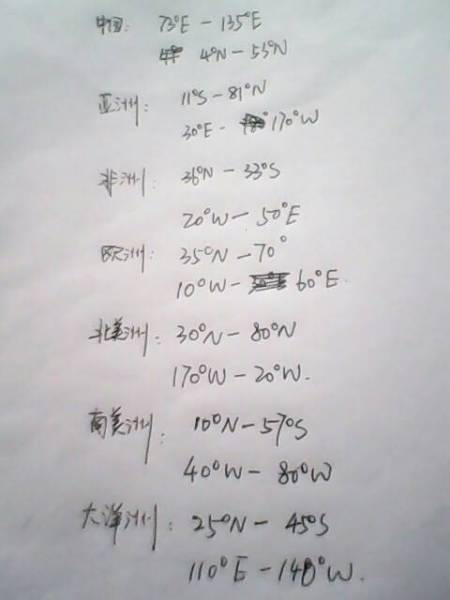 中国: 73°E - 135°E
4°N - 53°N
亚洲: 11°S - 81°N
30°E - 170°W
非洲: 36°N - 33°S
20°W - 50°E
欧洲: 35°N - 70°
10°W - 60°E.
北美洲: 30°N - 80°N
170°W - 20°W.
南美洲: 10°N - 57°S
40°W - 80°W
大洋洲: 25°N - 45°S
110°E - 140°W.